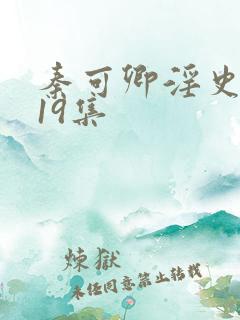 秦可卿淫史
19集
煉獄
未经同意禁止转载